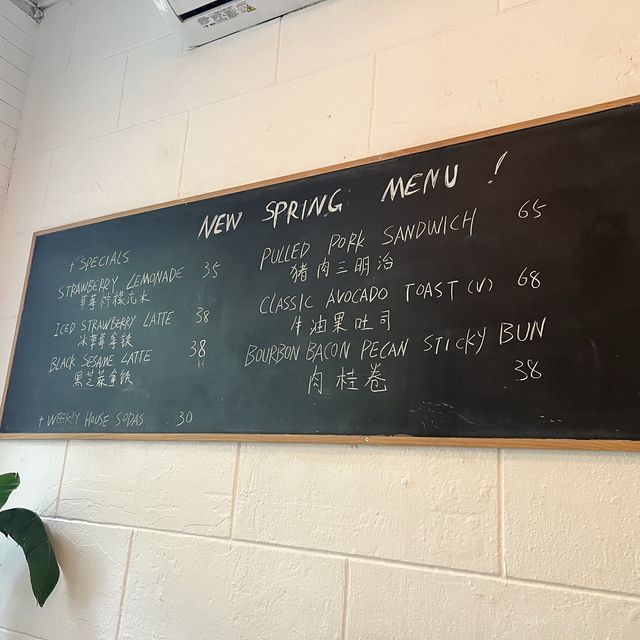 NEW SPRING MENU !
+ SPECIALS
STRAWBERRY LEMONADE 35
草莓柠檬汽水
ICED STRAWBERRY LATTE 38
冰草莓拿铁
BLACK SESAME LATTE 38
黑芝麻拿铁
+ WEEKLY HOUSE SODAS 30
PULLED PORK SANDWICH 65
猪肉三明治
CLASSIC AVOCADO TOAST (V) 68
牛油果吐司
BOURBON BACON PECAN STICKY BUN
38
肉桂卷